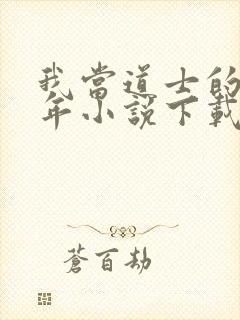 我當道士的
年小說下載
蒼百劫